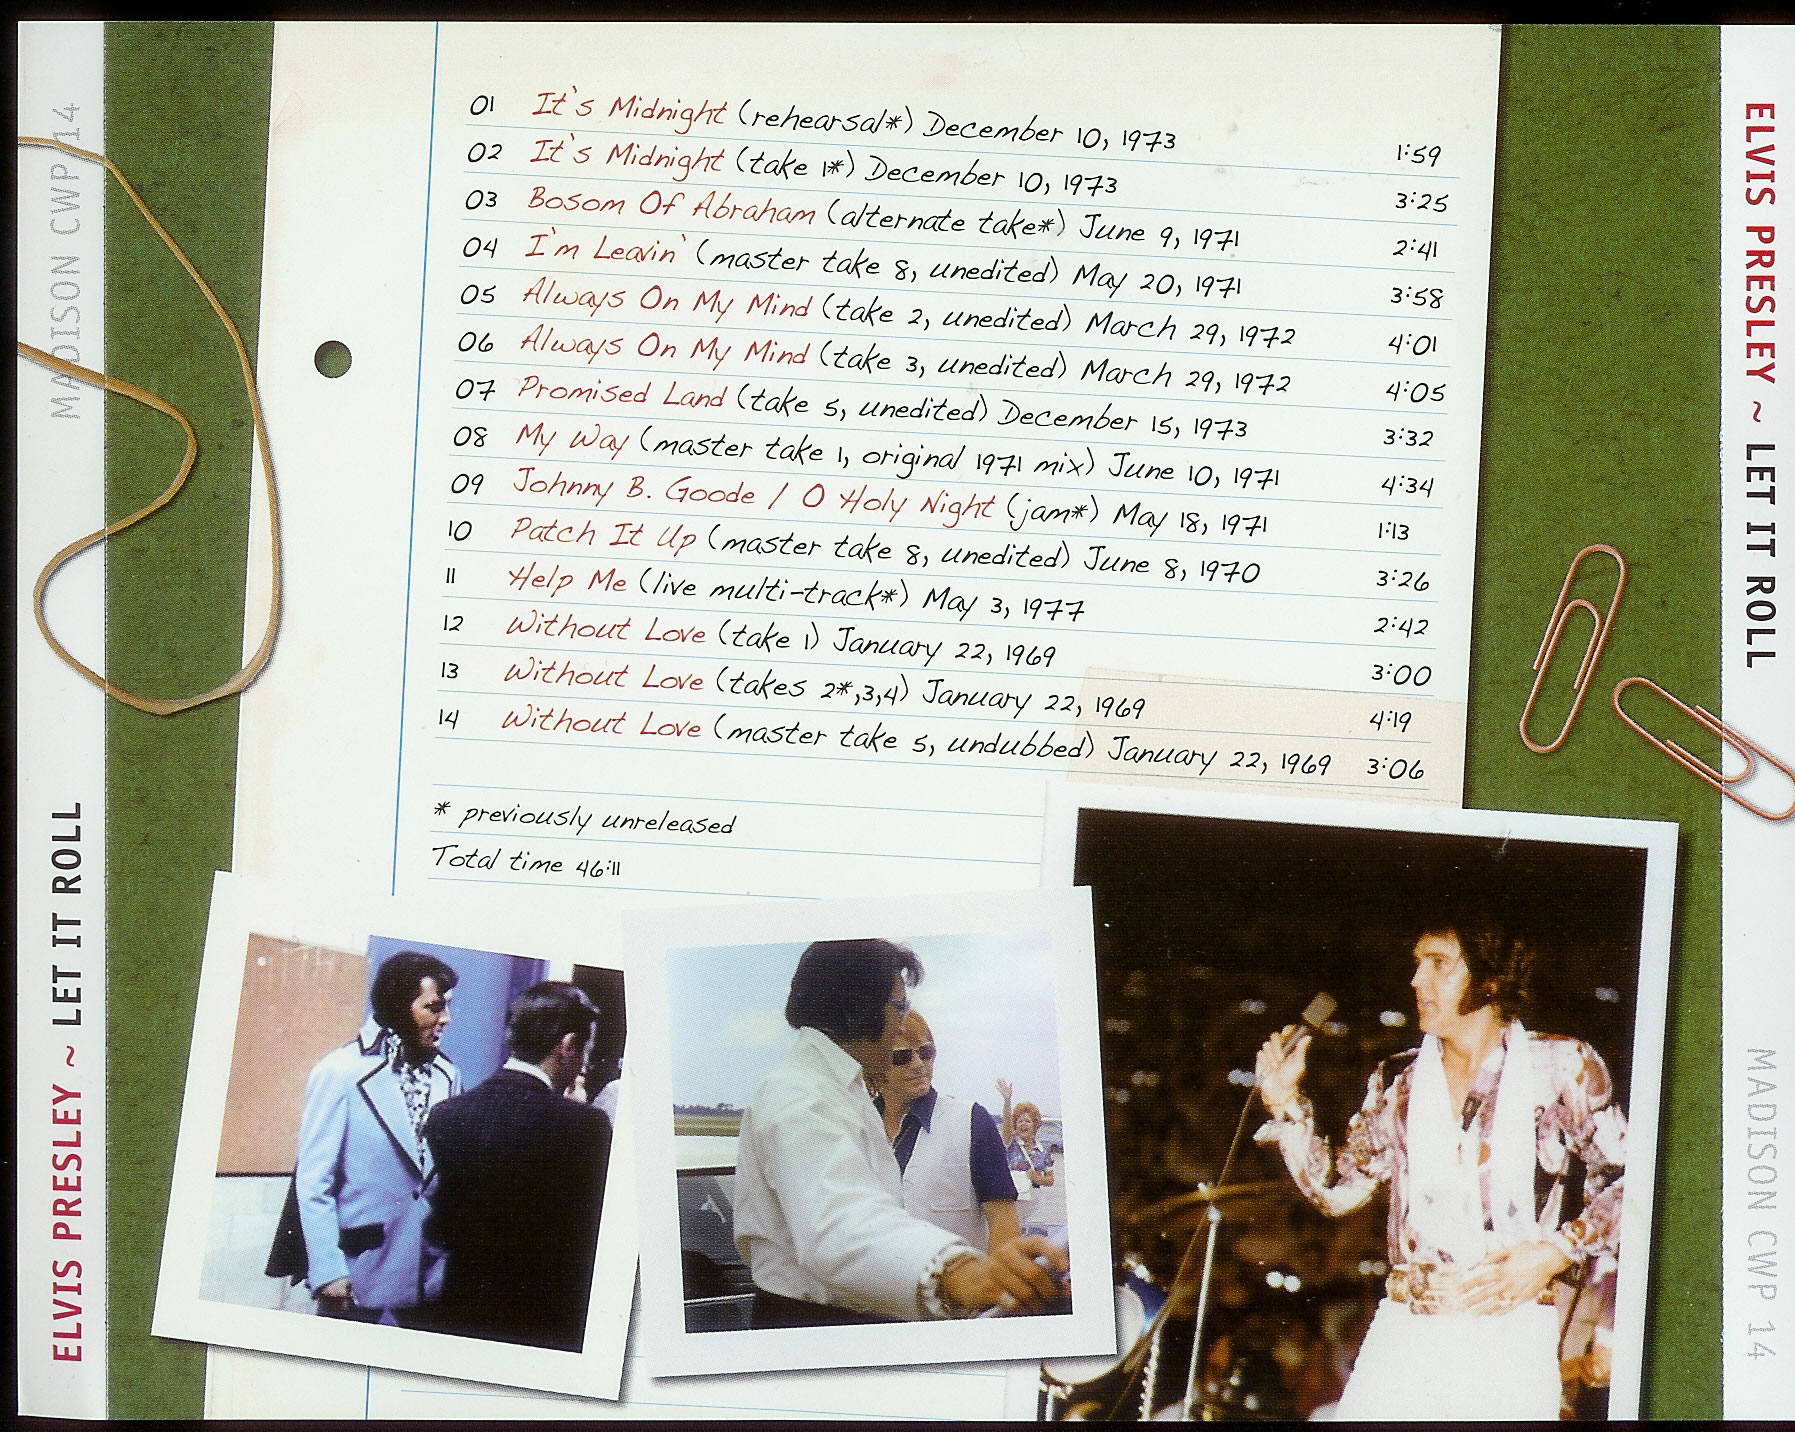 01 It's Midnight (rehearsal*) December 10, 1973 1:59
02 It's Midnight (take 1*) December 10, 1973 3:25
03 Bosom Of Abraham (alternate take*) June 9, 1971 2:41
04 I'm Leavin' (master take 8, unedited) May 20, 1971 3:58
05 Always On My Mind (take 2, unedited) March 29, 1972 4:01
06 Always On My Mind (take 3, unedited) March 29, 1972 4:05
07 Promised Land (take 5, unedited) December 15, 1973 3:32
08 My Way (master take 1, original 1971 mix) June 10, 1971 4:34
09 Johnny B. Goode / O Holy Night (jam*) May 18, 1971 1:13
10 Patch It Up (master take 8, unedited) June 8, 1970 3:26
11 Help Me (live multi-track*) May 3, 1977 2:42
12 Without Love (take 1) January 22, 1969 3:00
13 Without Love (takes 2*,3,4) January 22, 1969 4:19
14 Without Love (master take 5, undubbed) January 22, 1969 3:06
* previously unreleased
Total time 46:11
ELVIS PRESLEY ~ LET IT ROLL
MADISON CWP 14
ELVIS PRESLEY ~ LET IT ROLL
MADISON CWP 14